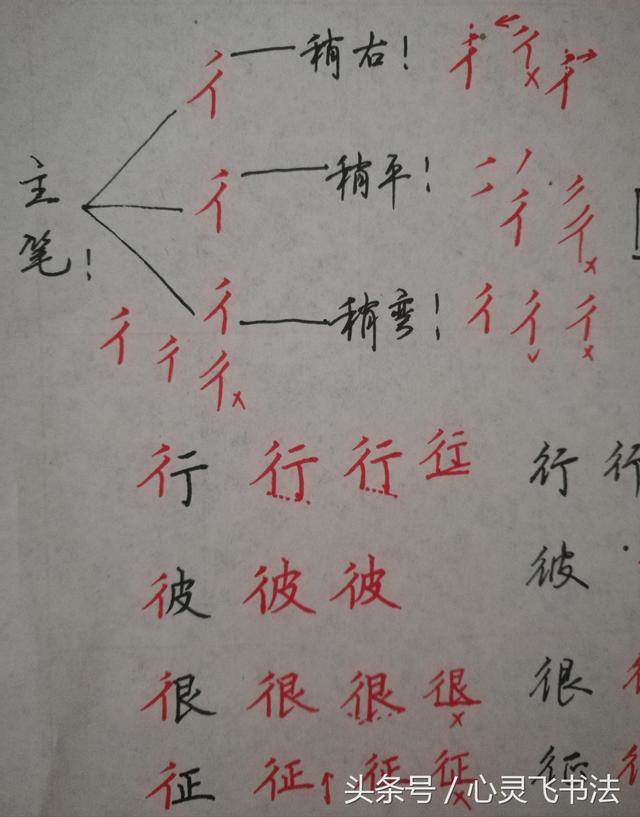 彳 稍右！ 彳 彳 彳
主笔！
彳 稍平！ 彳 彳
彳 稍弯！ 彳 彳 彳
彳 彳 彳
行 行 行 行 行 行
彼 彼 彼 彼
很 很 很 很 很
征 征 征 征 征
头条号／心灵飞书法